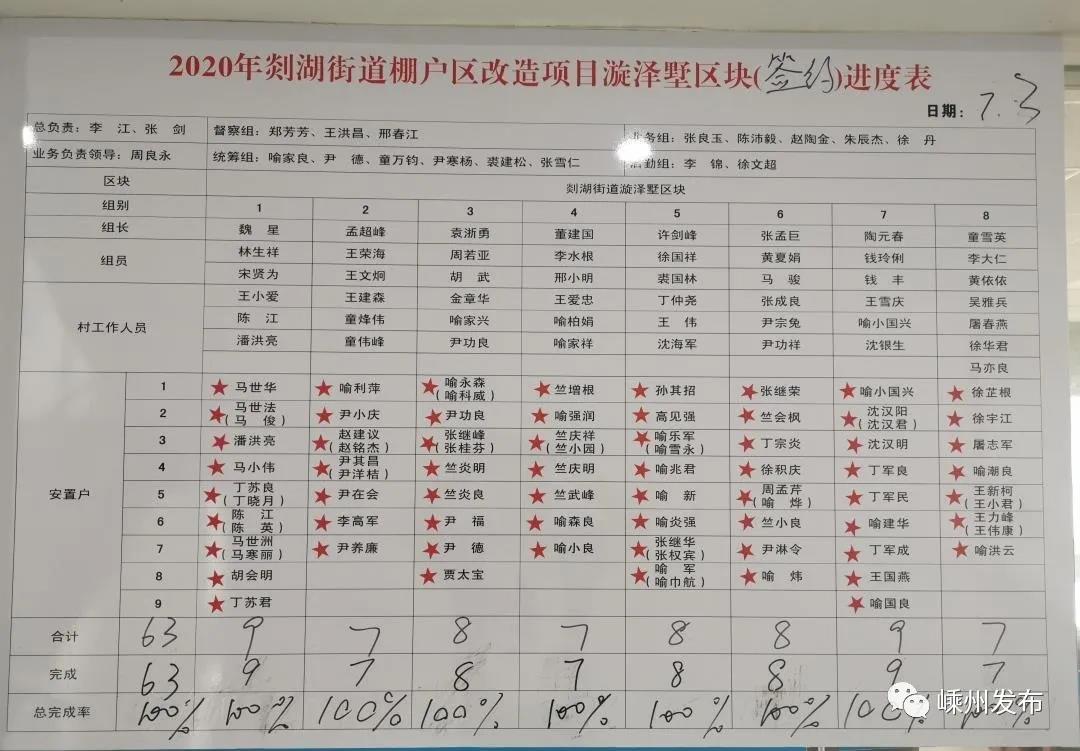 2020年剡湖街道棚户区改造项目漩泽墅区块(签约)进度表
日期: 7.3
总负责：李 江、张 剑 督察组：郑芳芳、王洪昌、邢春江 业务组：张良玉、陈沛毅、赵陶金、朱辰杰、徐 丹
业务负责领导：周良永 统筹组：喻家良、尹 德、童万钧、尹寒杨、裘建松、张雪仁 后勤组：李 锦、徐文超
区块 剡湖街道漩泽墅区块
组别 1 2 3 4 5 6 7 8
组长 魏 星 孟超峰 袁浙勇 董建国 许剑峰 张孟巨 陶元春 童雪英
组员 林生祥 王荣海 周若亚 李水根 徐国祥 黄夏娟 钱玲俐 李大仁
宋贤为 王文炯 胡 武 邢小明 裘国林 马 骏 钱 丰 黄依依
村工作人员 王小爱 王建森 金章华 王爱忠 丁仲尧 张成良 王雪庆 吴雅兵
陈 江 童烽伟 喻家兴 喻柏娟 王 伟 尹宗兔 喻小国兴 屠春燕
潘洪亮 童伟峰 尹功良 喻家祥 沈海军 尹功祥 沈银生 徐华君
马亦良
安置户
1 马世华 喻利萍 喻永森(喻科威) 竺增根 孙其招 张继荣 喻小国兴 徐芷根
2 马世法(马 俊) 尹小庆 尹功良 喻强润 高见强 竺会枫 沈汉阳(沈汉君) 徐宇江
3 潘洪亮 赵建议(赵铭杰) 张继峰(张桂芬) 竺庆祥(竺小园) 喻乐军(喻雪永) 丁宗炎 沈汉明 屠志军
4 马小伟 尹其昌(尹洋桔) 竺炎明 竺庆明 喻兆君 徐积庆 丁军良 喻潮良
5 丁苏良(丁晓月) 尹在会 竺炎良 竺武峰 喻 新 周孟芹(喻 烨) 丁军民 王新柯(王小君)
6 陈 江(陈 英) 李高军 尹 福 喻森良 喻炎强 竺小良 喻建华 王力峰(王伟康)
7 马世洲(马寒丽) 尹养廉 尹 德 喻小良 张继华(张权宾) 尹淋令 丁军成 喻洪云
8 胡会明 贾太宝 喻 军(喻巾航) 喻 炜 王国燕
9 丁苏君 喻国良
合计 63 9 7 8 7 8 8 9 7
完成 63 9 7 8 7 8 8 9 7
总完成率 100% 100% 100% 100% 100% 100% 100% 100% 100%
嵊州发布